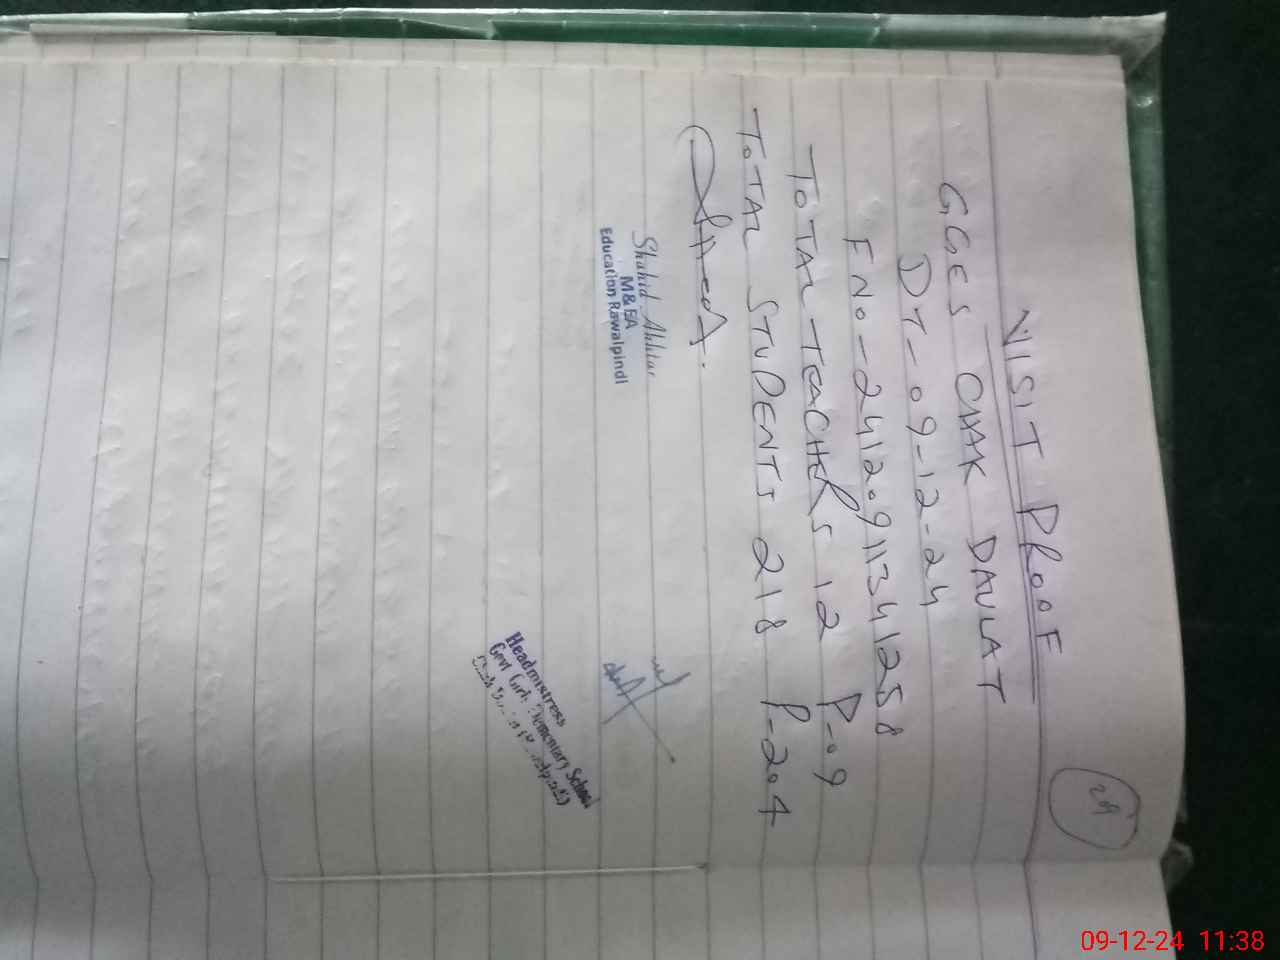 VISIT PROOF
GGES CHAK DAULAT
DT-09-12-24
FNO-24120911341258
TOTAL TEACHERS 12 P-09
TOTAL STUDENTS 218 P-204
Shahid Akhtar
M&EA
Education Rawalpindi
Headmistress
Govt Girls Elementary School
09-12-24 11:38